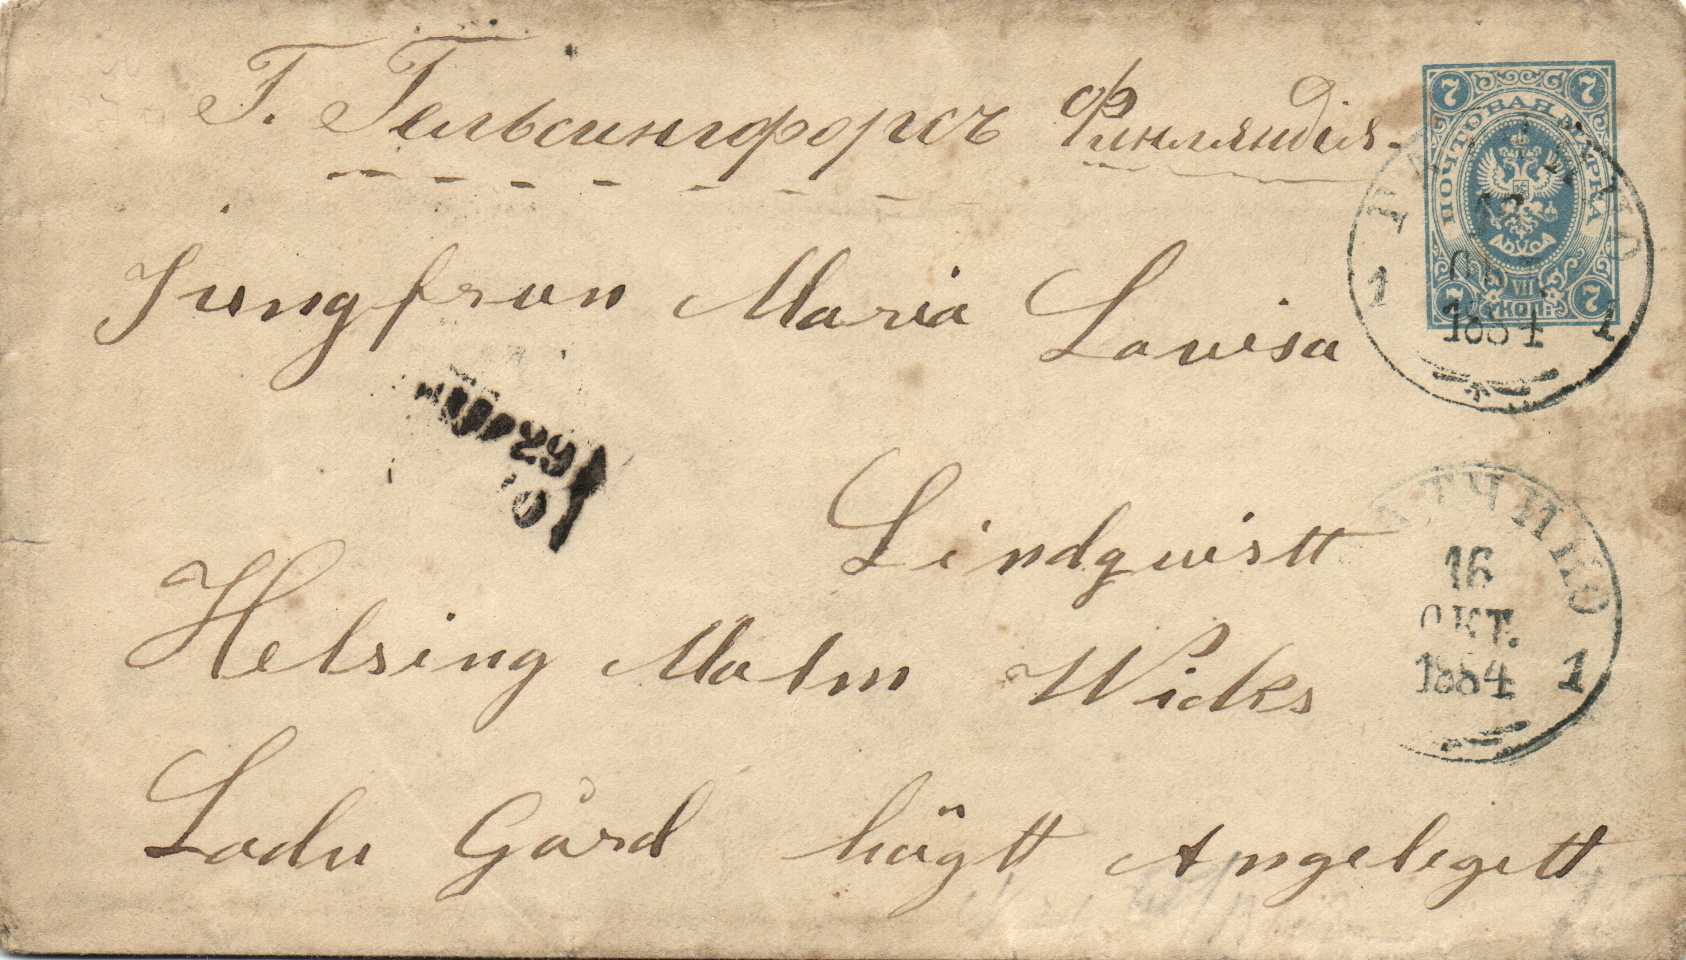 Г. Гельсингфорсъ Финляндія.
Jungfrun Maria Lovisa
Lindqvistt
Helsing Malm Wicks
Ladu Gård högt Angelegett
7 7
ПОЧТОВАЯ МАРКА
7 VII КОП. 7
17
1884
1 1
29
10
16
ОКТ.
1884
1